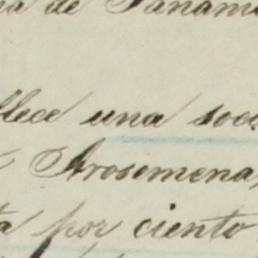 de Panam
llece una soc
Arosemena,
ta por ciento